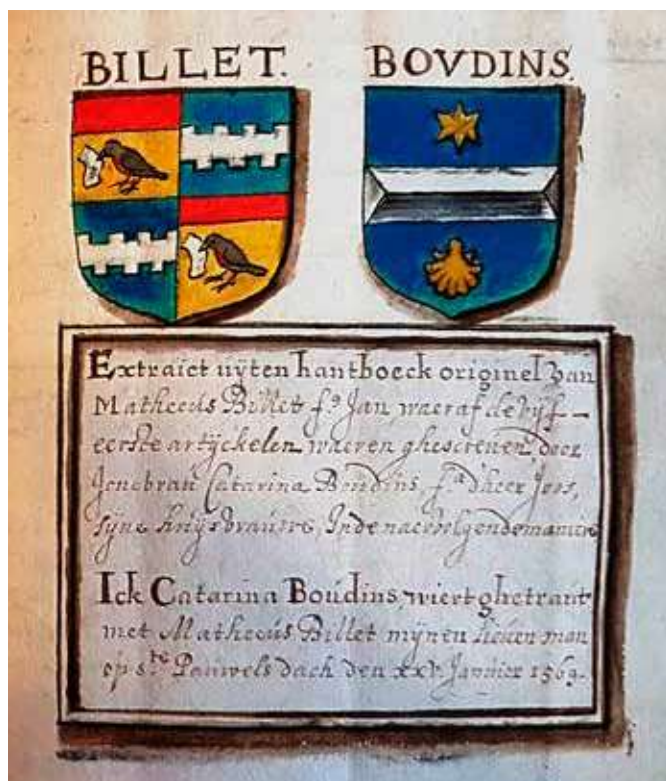 BILLET. BOVDINS.
Extraict uÿten hantboeck originel van
Matheeus Billet f.ˢ Jan, waeraf de vijf
eerste artijckelen waeren ghescreven, door
Jonvrau Catarina Boudins f.ᵃ d'heer Joos,
sijne huijsvrauwe, Inde naervolgende manier
Ick Catarina Boudins, wiert ghetraut
met Matheeus Billet mijnen lieven man
op s.ᵗᵉ Pauwels dach den xxv. Januier 1569.